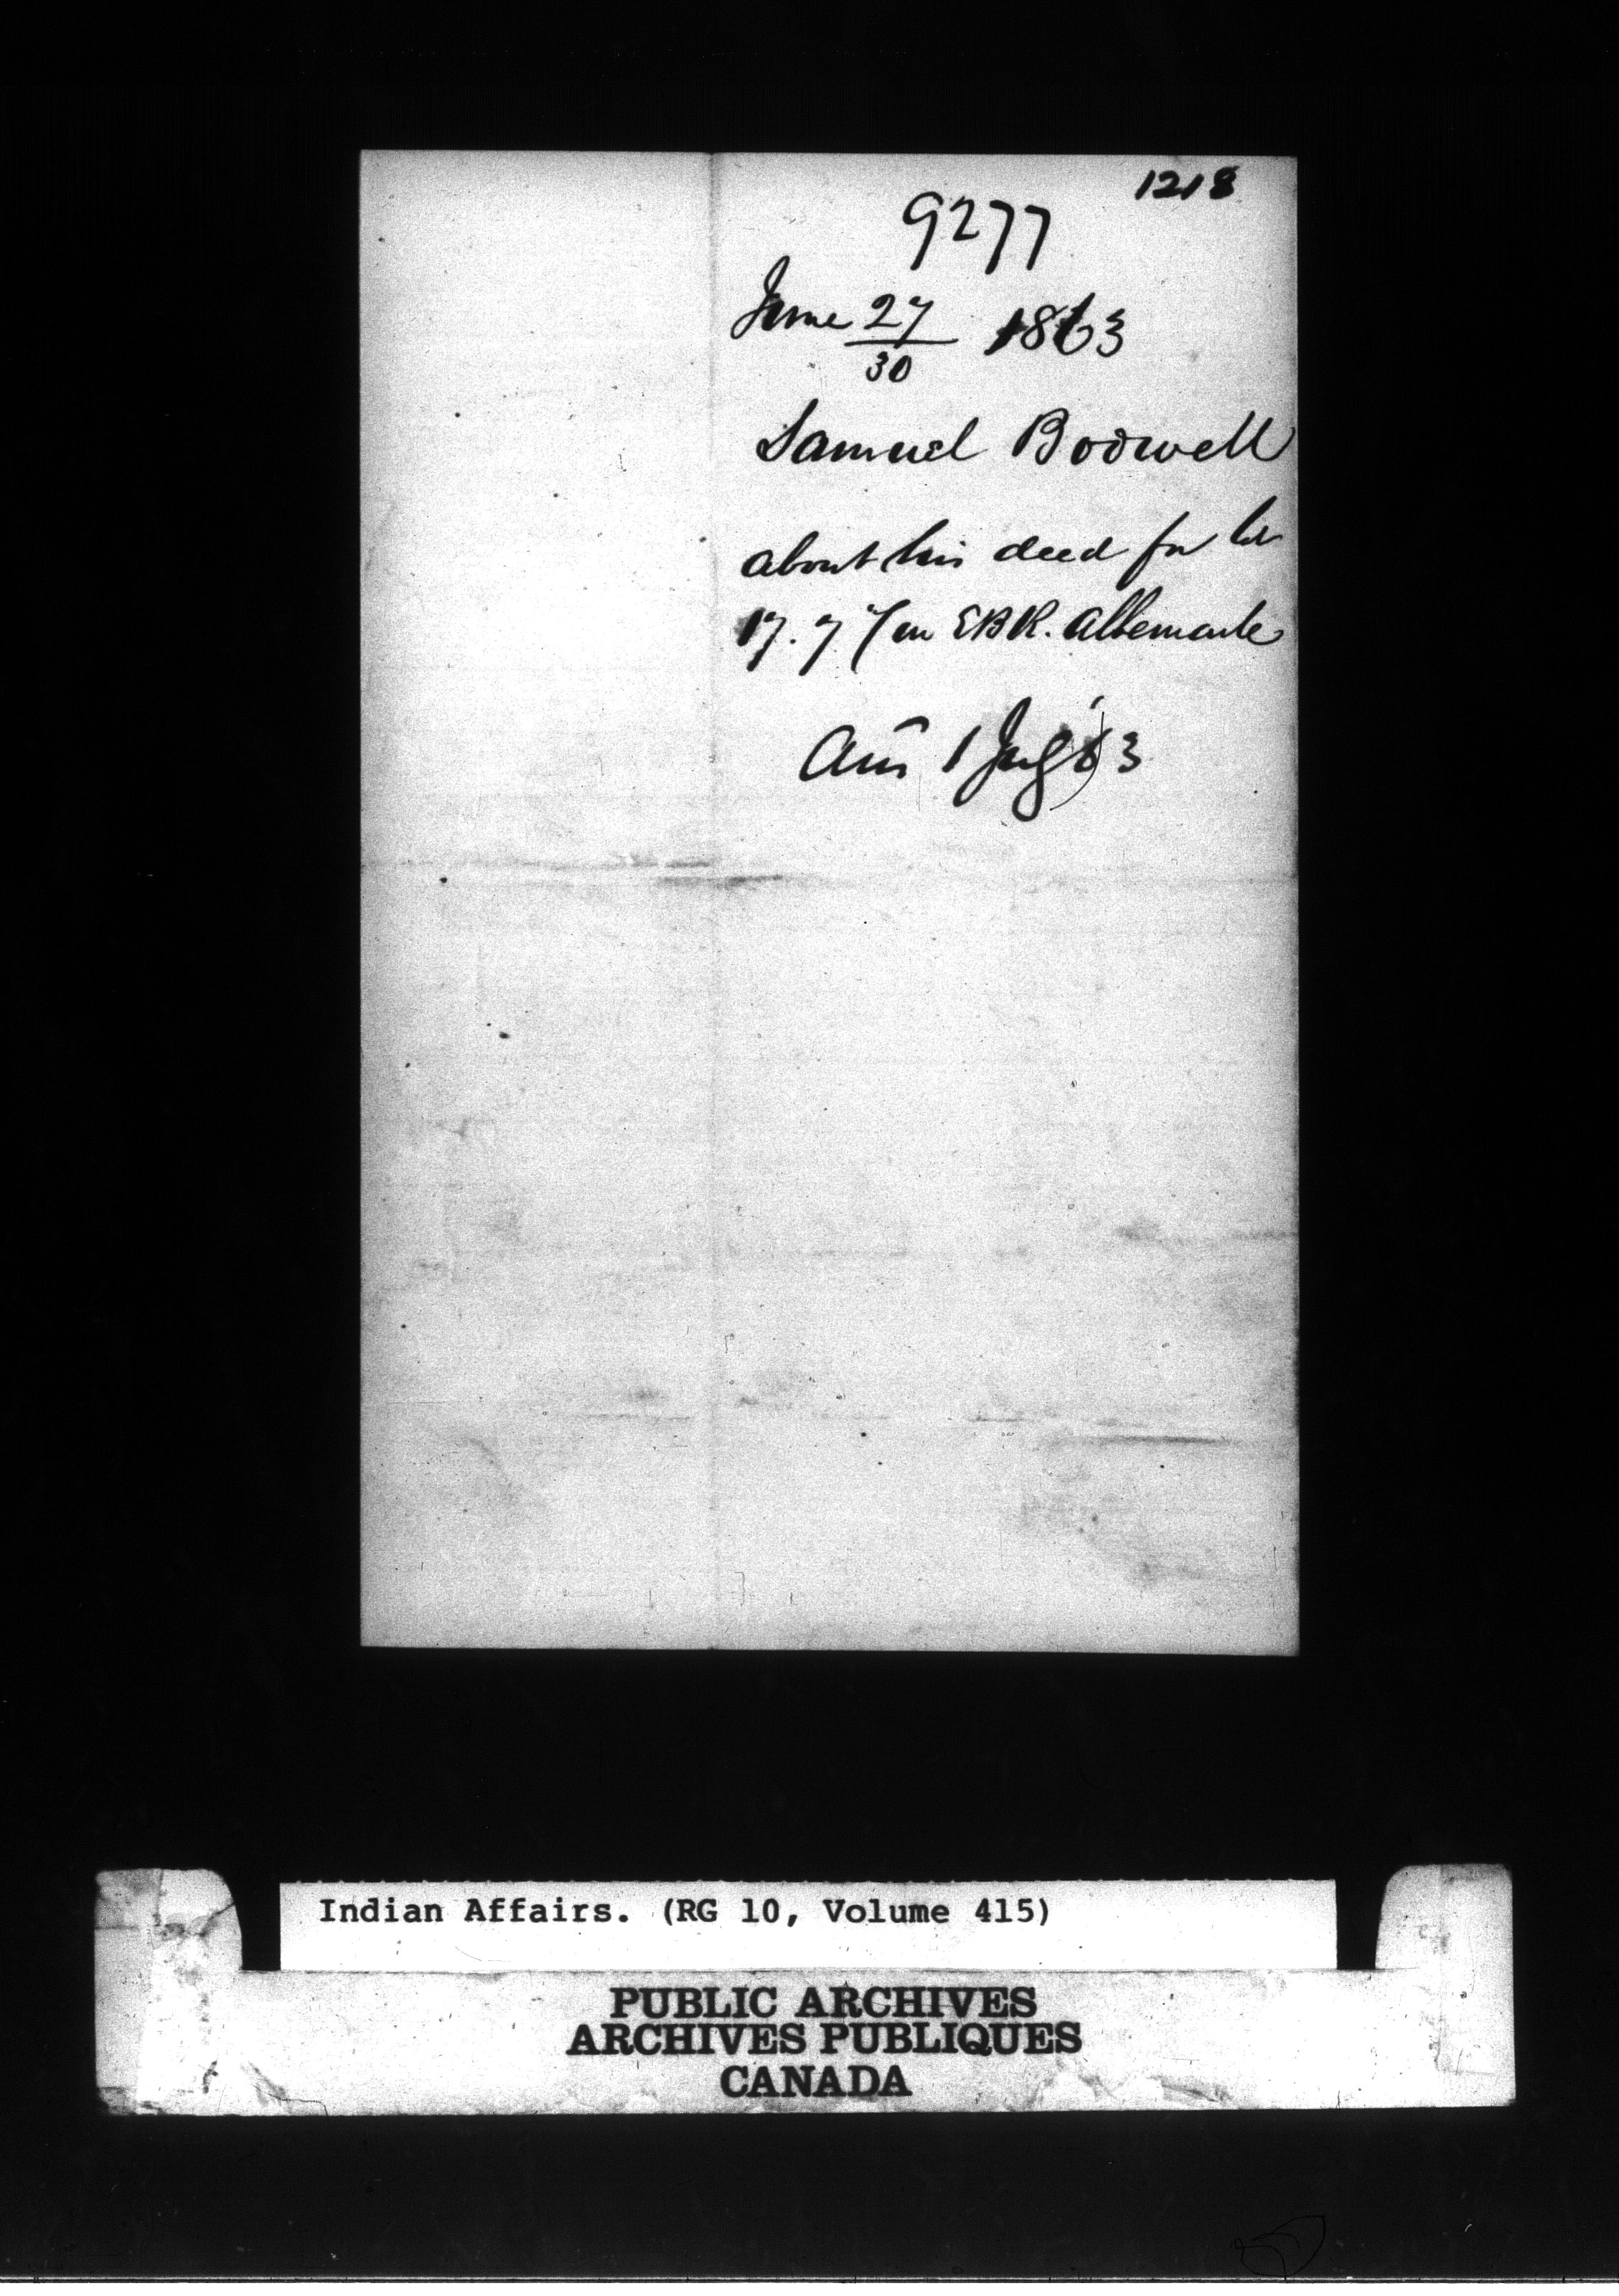 1218
9277
June 27/30 1863
Samuel Bodwell
about his deed for lot
17. 7 Con EBR. Albemarle
Ansd 1 July 63
Indian Affairs. (RG 10, Volume 415)
PUBLIC ARCHIVES
ARCHIVES PUBLIQUES
CANADA